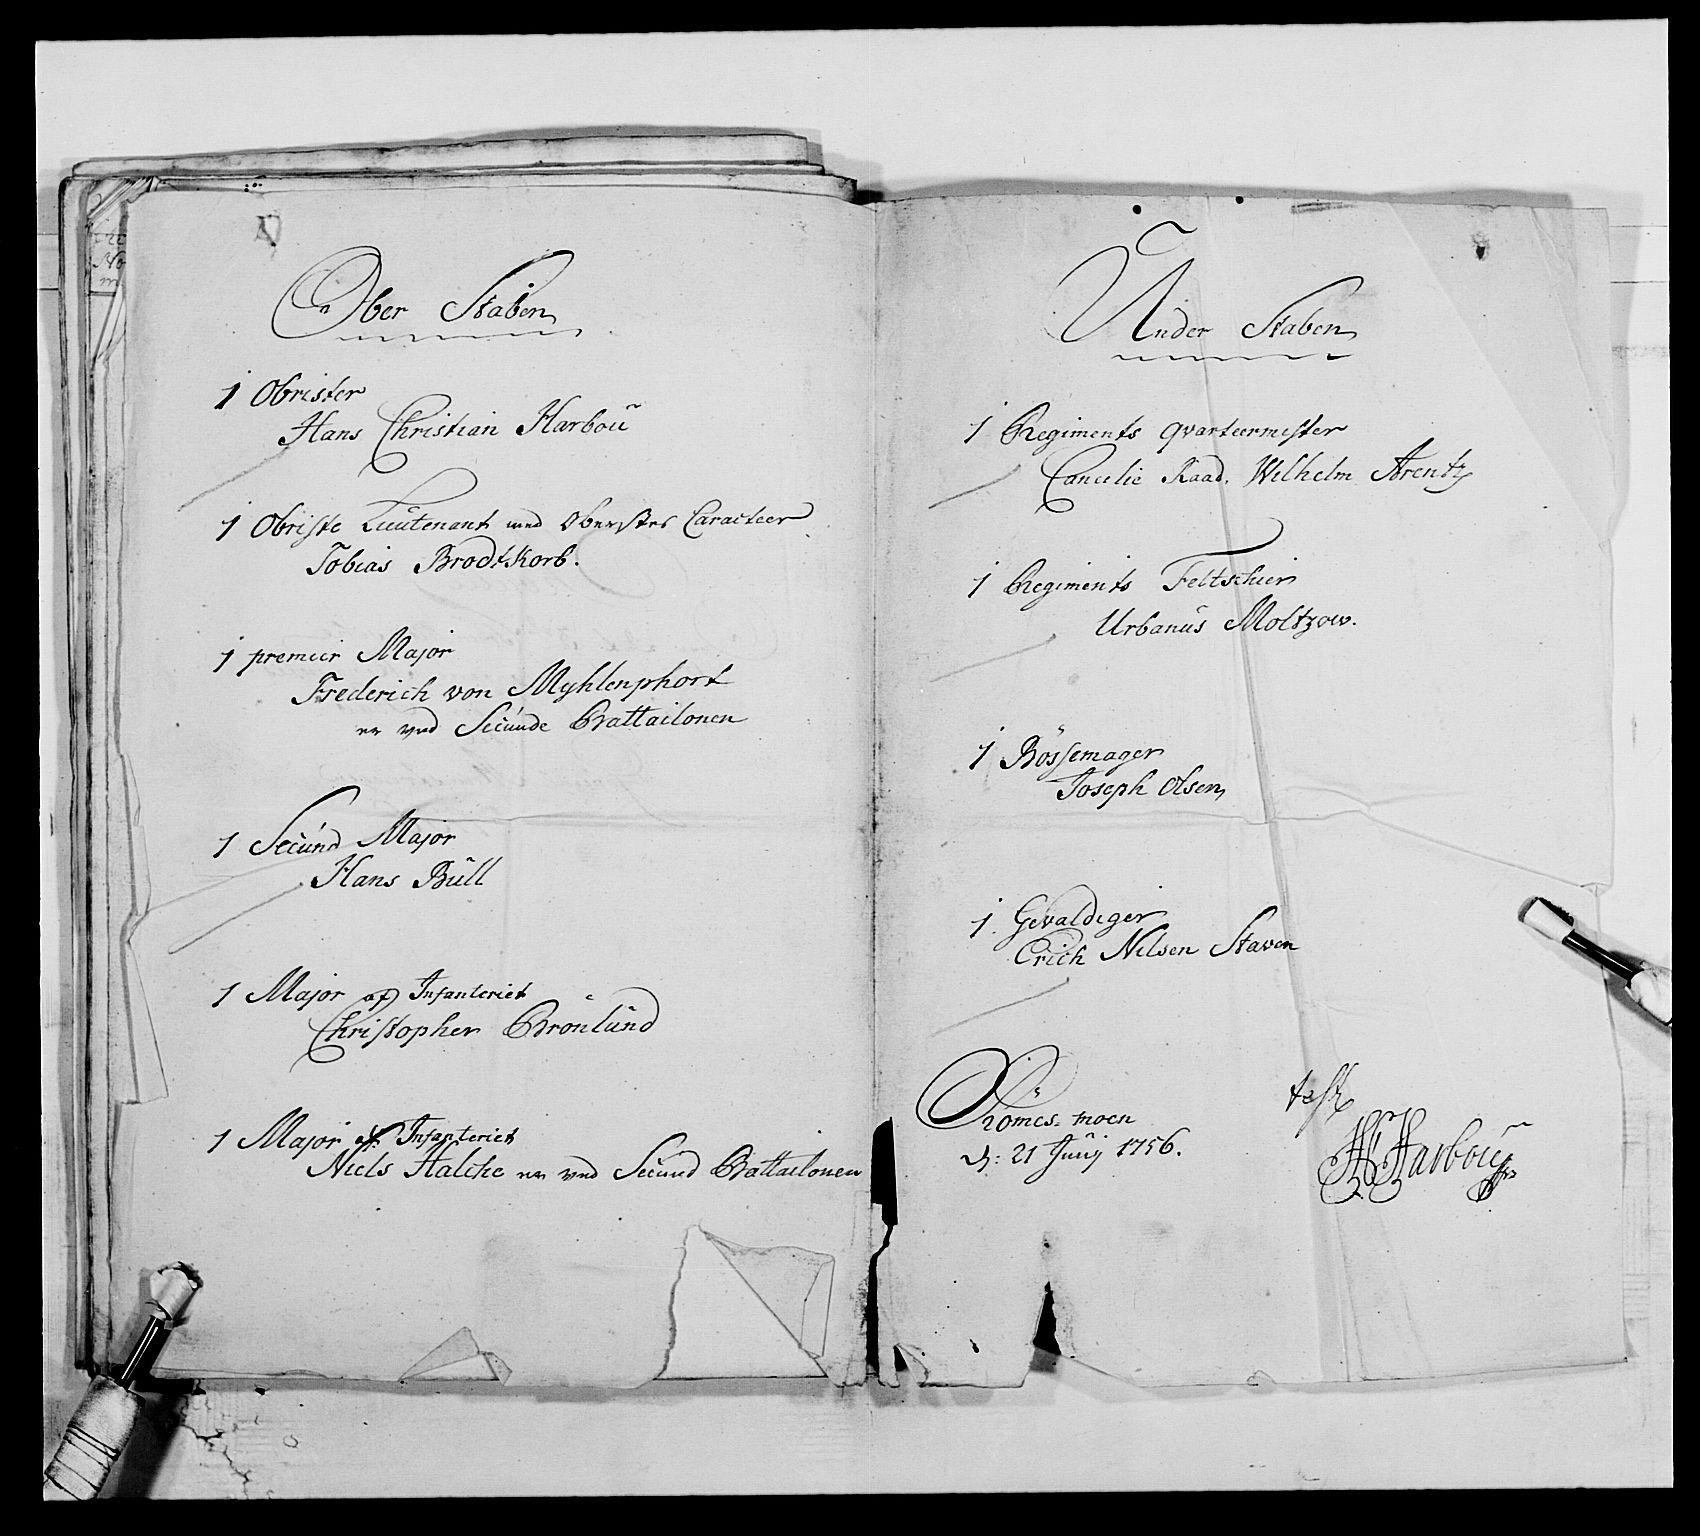 Ober Staben
1 Obrister
Hans Christian Harboü
1 Obriste Lieütenant med Oberstes Caracteer
Tobias Brodtkorb.
1 premier Major
Frederich von Myhlenphort
er ved Secúnde Battailonen
1 Secúnd Major
Hans Büll
1 Major af Infanteriet
Christopher Brönlünd
1 Major af Infanteriet
Niels Halcke er ved Secünd Battailonen
Under Staben
1 Regiments Qvarteermester
Cancelie Raad. Wilhelm Arentz
1 Regiments Feltschier
Urbanüs Moltzow.
1 Bössemager
Joseph Olsen
1. Gevaldiger
Erich Nilsen Staven
Römes-moen
d: 21 Jünÿ 1756.
test
HHarboü